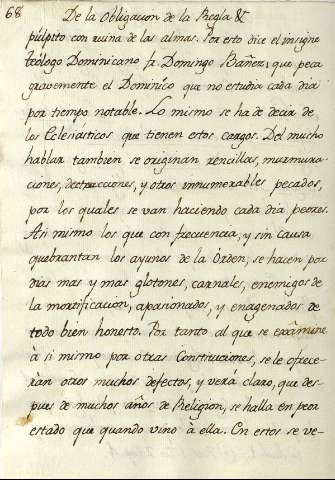 68 De la Obligacion de la Regla &
pùlpito con ruina de las almas. Por esto dice el insigne
teòlogo Dominicano fr. Domingo Bañez, que peca
gravemente el Dominico que no estudia cada dia
por tiempo notable. Lo mismo se ha de decir de
los Eclesiàsticos que tienen estos cargos. Del mucho
hablar tambien se originan rencillas, murmura-
ciones, detracciones, y otros innumerables pecados,
por los quales se van haciendo cada dia peores.
Asi mismo los que con frecuencia, y sin causa
quebrantan los ayunos de la Orden, se hacen por
dias mas y mas glotones, carnales, enemigos de
la mortificacion, apasionados, y enagenados de
todo bien honesto. Por tanto al que se exâmine
à si mismo por otras Constituciones, se le ofrece-
ràn otros muchos defectos, y verà claro, que des-
pues de muchos años de Religion, se halla en peor
estado que quando vino à ella. En estos se ve-